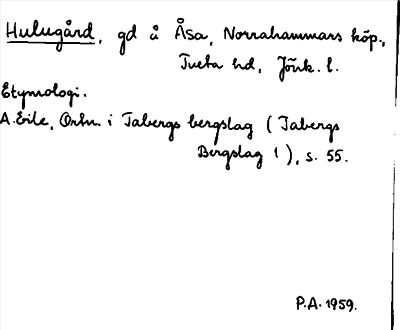 Hulugård, gd å Åsa, Norrahammars köp.,
Tveta hd, Jönk. l.
Etymologi.
A. Ejle, Ortn. i Tabergs bergslag (Tabergs
Bergslag 1), s. 55.
P.A. 1959.